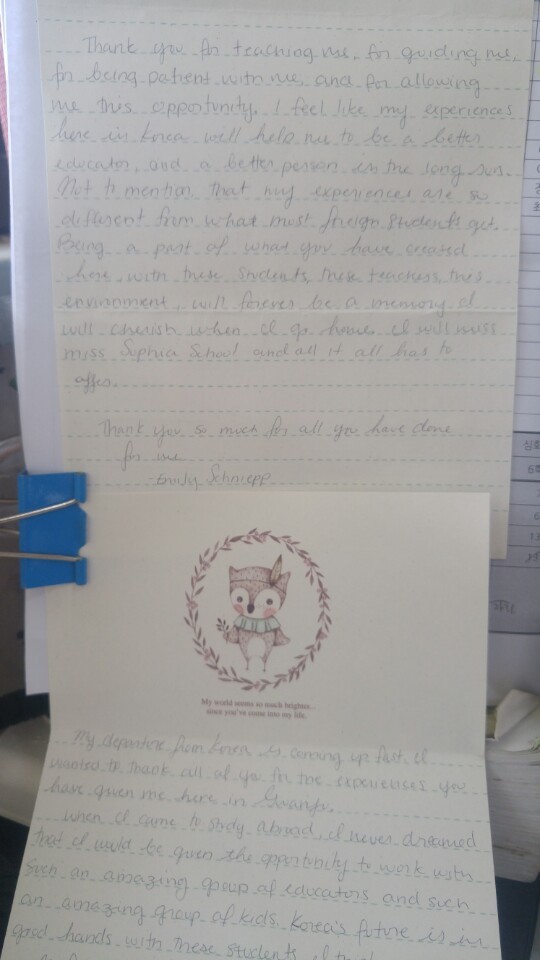 Thank you for teaching me, for guiding me,
for being patient with me, and for allowing
me this opportunity. I feel like my experiences
here in Korea will help me to be a better
educator, and a better person in the long run.
Not to mention, that my experiences are so
different from what most foreign students get.
Being a part of what you have created
here, with these students, these teachers, this
environment, will forever be a memory I
will cherish when I go home. I will miss
miss Sophia School and all it all has to
offer.
Thank you so much for all you have done
for me
Emily Schniepp
My world seems so much brighter...
since you've come into my life.
My departure from Korea is coming up fast. I
wanted to thank all of you for the experiences you
have given me here in
When I came to study abroad, I never dreamed
that I would be given the opportunity to work with
such an amazing group of educators and such
an amazing group of kids. Korea's future is in
good hands with these students. I